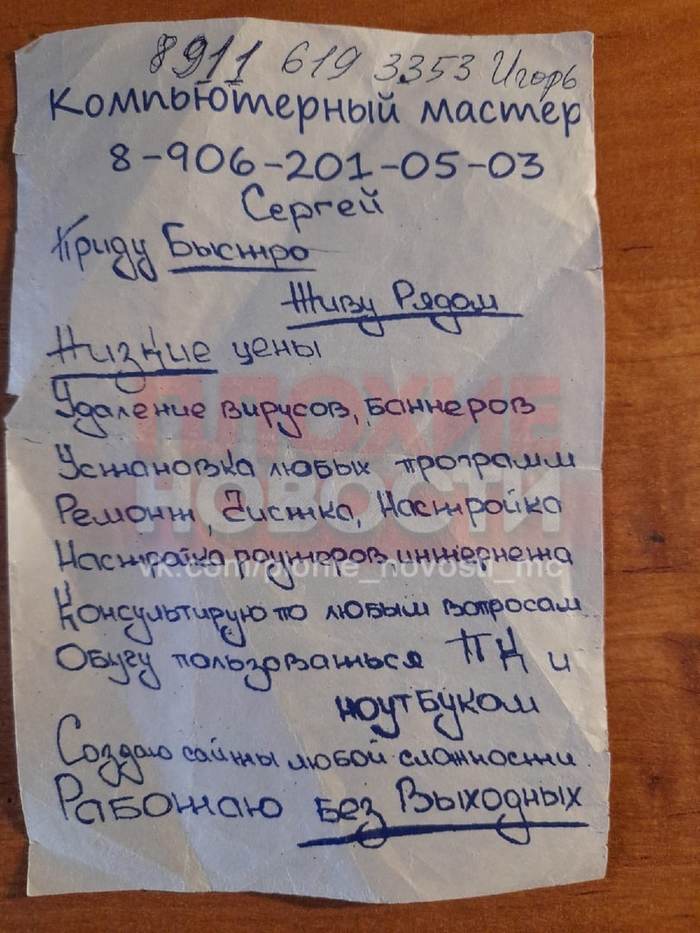 8911 619 3353 Игорь
Компьютерный мастер
8-906-201-05-03
Сергей
Приду Быстро
Живу Рядом
Низкие цены
Удаление вирусов, баннеров
Установка любых программ
Ремонт, Чистка, Настройка
Настройка роутеров, интернета
vk.com/plohie_novosti_mc
Консультирую по любым вопросам
Обучу пользоваться ПК и
ноутбуком
Создаю сайты любой сложности
Работаю Без Выходных
ПЛОХИЕ
НОВОСТИ